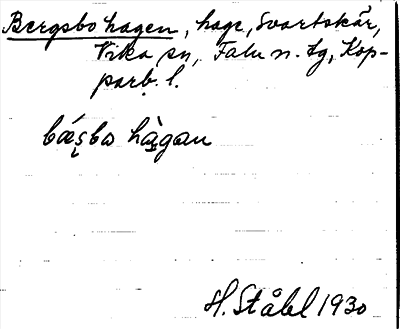 Bergsbo hagen, hage, Svartskär,
Vika sn, Falu n. tg, Kop-
parb. l.
bä́s̨bo hà̱gan
H. Ståhl 1930